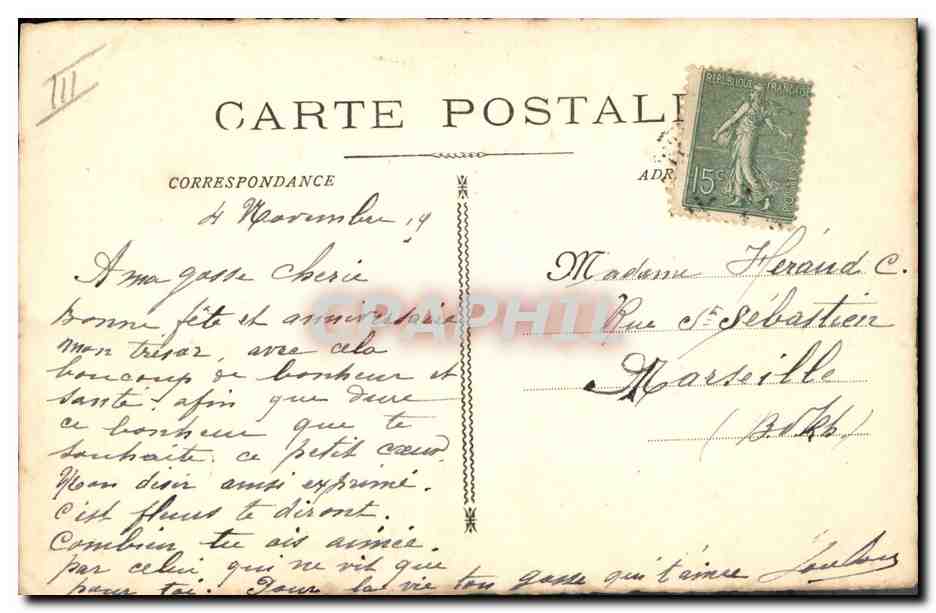 III
CARTE POSTAL
RÉPUBLIQUE FRANÇAISE
15c
POSTES
CORRESPONDANCE
ADR
4 Novembre 19
A ma gosse cherie
Bonne fête et anniversaire
mon tresor, avec cela
boucoup de bonheur et
sante. afin que dure
ce bonheur que te
souhaite. ce petit cœur.
Mon disir ainsi exprimé.
c'est fleurs te diront.
Combien tu ais aimée.
par celui qui ne vit que
pour toi. Pour la vie ton gosse qui t'aimee Loulou
Madame Héraud C.
Rue St Sébastien
Marseille
(B. d Rh.)
CRAPHIL